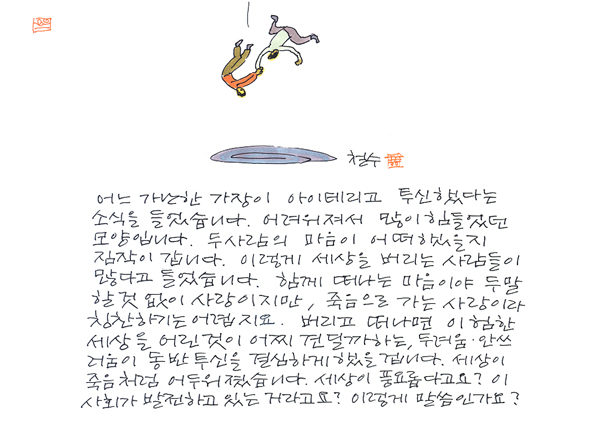 철수
어느 가난한 가장이 아이데리고 투신했다는
소식을 들었습니다. 어려워져서 많이 힘들었던
모양입니다. 두사람의 마음이 어떠했을지
짐작이 갑니다. 이렇게 세상을 버리는 사람들이
많다고 들었습니다. 함께 떠나는 마음이야 두말
할것 없이 사랑이지만, 죽음으로 가는 사랑이라
칭찬하기는 어렵지요. 버리고 떠나면 이 험한
세상을 어린것이 어찌 견딜까하는, 두려움·안쓰
러움이 동반투신을 결심하게했을겝니다. 세상이
죽음처럼 어두워졌습니다. 세상이 풍요롭다고요? 이
사회가 발전하고 있는 거라고요? 이렇게 말씀인가요?